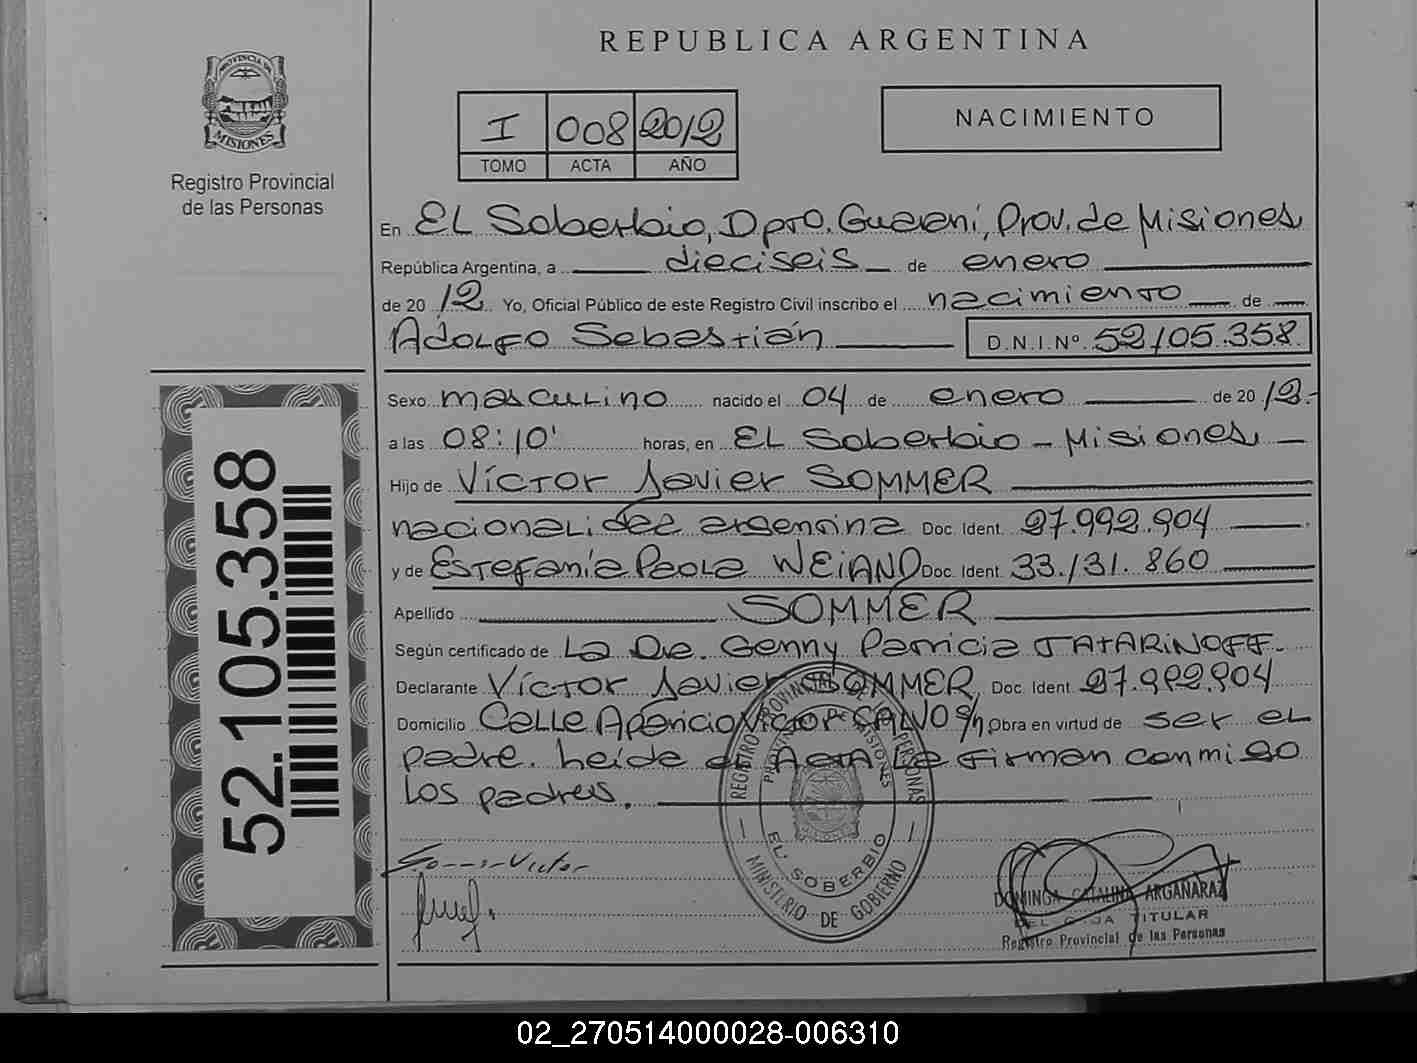 REPUBLICA ARGENTINA
PROVINCIA DE
MISIONES
Registro Provincial
de las Personas
I 008 2012
TOMO ACTA AÑO
NACIMIENTO
En EL Soberbio, Dpto. Guaraní, Prov. de Misiones
República Argentina, a dieciseis de enero
de 2012 Yo, Oficial Público de este Registro Civil inscribo el nacimiento de
Adolfo Sebastián D.N.I.Nº. 52.105.358.
Sexo masculino nacido el 04 de enero de 2012.-
a las 08:10' horas, en EL Soberbio - Misiones, -
Hijo de Víctor Javier SOMMER
nacionalidad argentina Doc. Ident. 27.992.904
y de Estefanía Paola WEIAND Doc. Ident. 33.131.860
Apellido SOMMER
Según certificado de La Dra. Genny Patricia TATARINOFF.
Declarante Víctor Javier SOMMER, Doc. Ident. 27.992.904
Domicilio Calle Aparicio Víctor CALVO s/n, Obra en virtud de ser el
padre. Leída el Acta La Firman conmigo
los padres.
52.105.358
REGISTRO PROVINCIAL DE LAS PERSONAS
PROVINCIA DE MISIONES
EL SOBERBIO
MINISTERIO DE GOBIERNO
Sommer Victor
DOMINGA CATALINA ARGAÑARAZ
TITULAR
Registro Provincial de las Personas
02_270514000028-006310